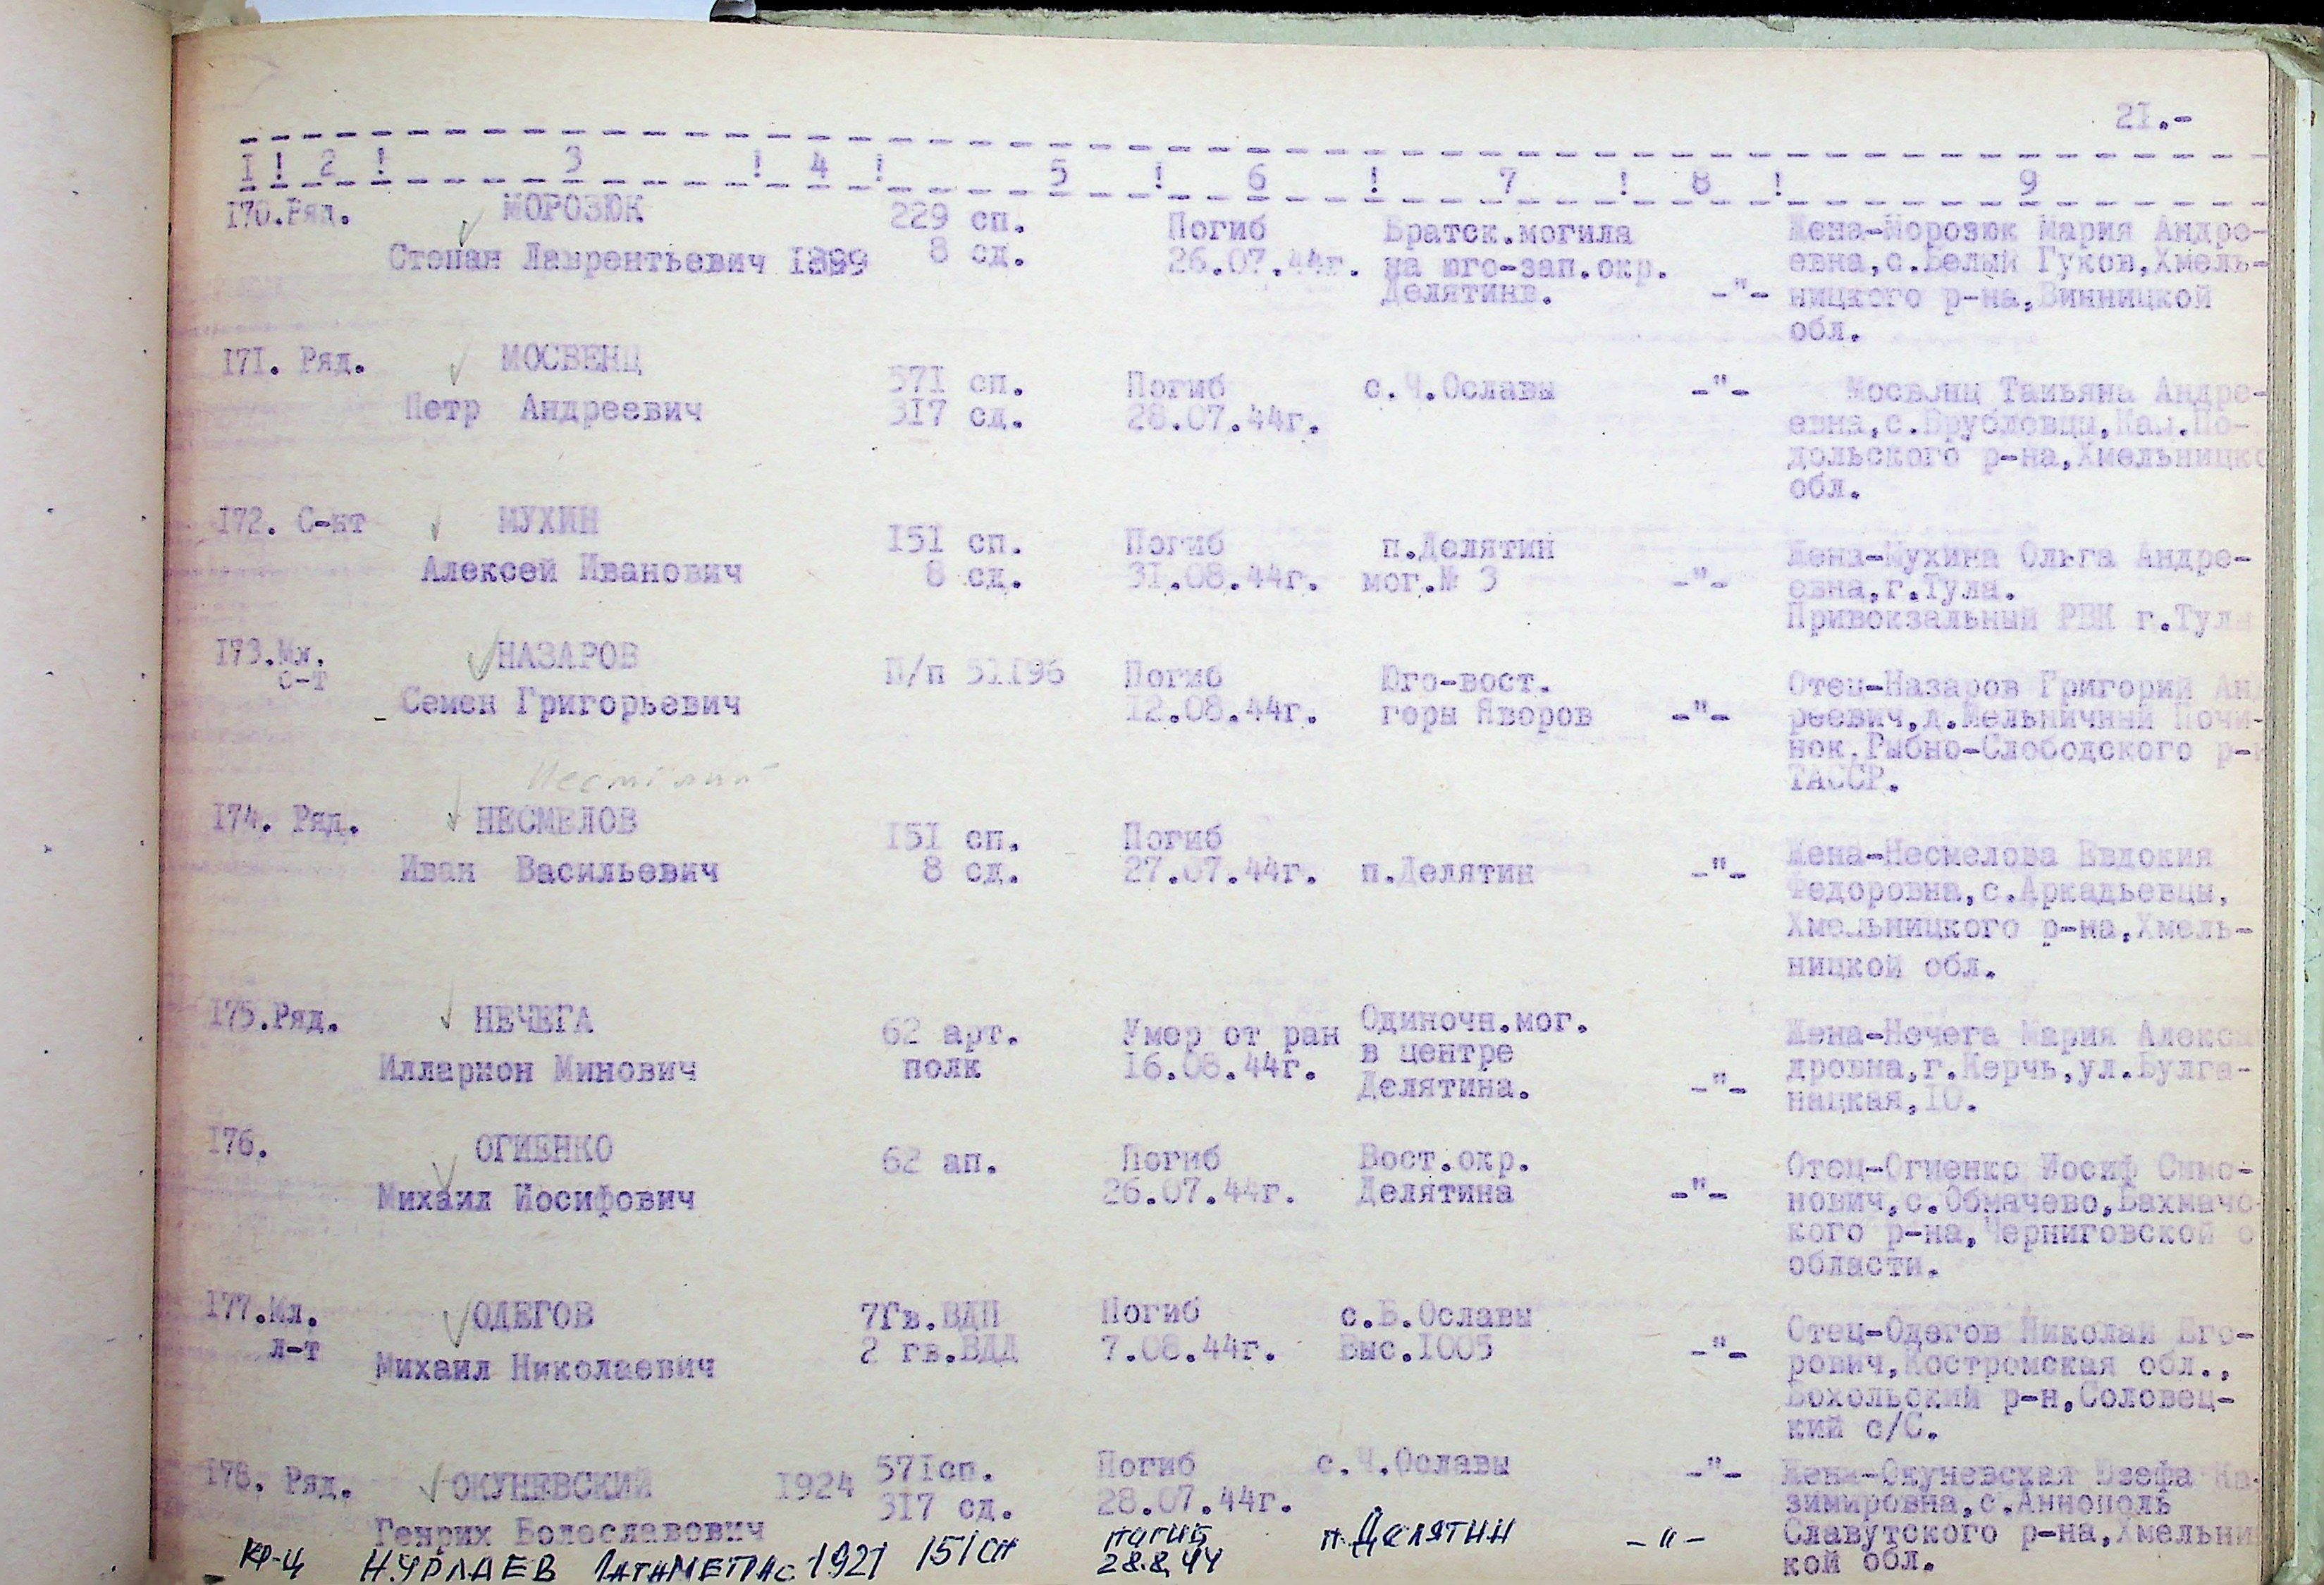 21.-
I ! 2 ! 3 ! 4 ! 5 ! 6 ! 7 ! 8 ! 9
170.Ряд. МОРОЗЮК 229 сп. Погиб Братск.могила Жена-Морозюк Мария Андре-
Степан Лаврентьевич 1899 8 сд. 26.07.44г. на юго-зап.окр. евна,с.Белый Гуков,Хмель-
Делятина. -"- ницкого р-на,Винницкой
обл.
171. Ряд. МОСВЕНЦ 571 сп. Погиб с.Ч.Ославы -"- Мосвенц Татьяна Андре-
Петр Андреевич 317 сд. 28.07.44г. евна,с.Врубловцы,Кам.По-
дольского р-на,Хмельницко
обл.
172. С-нт МУХИН 151 сп. Погиб п.Делятин Жена-Мухина Ольга Андре-
Алексей Иванович 8 сд. 31.08.44г. мог.№ 3 -"- евна,г.Тула.
Привокзальный РВК г.Тулы
173.Мл. НАЗАРОВ П/п 51196 Погиб Юго-вост. Отец-Назаров Григорий Анд
с-т Семен Григорьевич 12.08.44г. горы Яворов -"- реевич,д.Мельничный Почи-
нок,Рыбно-Слободского р-н
ТАССР.
174. Ряд. НЕСМЕЛОВ 151 сп. Погиб Жена-Несмелова Евдокия
Иван Васильевич 8 сд. 27.07.44г. п.Делятин -"- Федоровна,с.Аркадьевцы,
Хмельницкого р-на,Хмель-
ницкой обл.
175.Ряд. НЕЧЕГА 62 арт. Умер от ран Одиночн.мог. Жена-Нечега Мария Алекса
Илларион Минович полк 16.08.44г. в центре дровна,г.Керчь,ул.Булга-
Делятина. -"- нацкая,10.
176. ОГИЕНКО 62 ап. Погиб Вост.окр. Отец-Огиенко Иосиф Симо-
Михаил Иосифович 26.07.44г. Делятина -"- нович,с.Обмачево,Бахмачс
кого р-на,Черниговской о
области.
177.Мл. ОДЕГОВ 7Гв.ВДП Погиб с.Б.Ославы Отец-Одегов Николай Его-
л-т Михаил Николаевич 2 гв.ВДД 7.08.44г. Выс.1005 -"- рович,Костромская обл.,
Вохольский р-н,Соловец-
кий с/С.
178. Ряд. ОКУНЕВСКИЙ 1924 571сп. Погиб с.Ч.Ославы -"- Жена-Окуневская Юзефа Ка
Генрих Болеславович 317 сд. 28.07.44г. зимировна,с.Аннополь
Славутского р-на,Хмельни
кой обл.
кр-ц НУРЛАЕВ 1921 151 сп погиб п.Делятин -"-
28.8.44